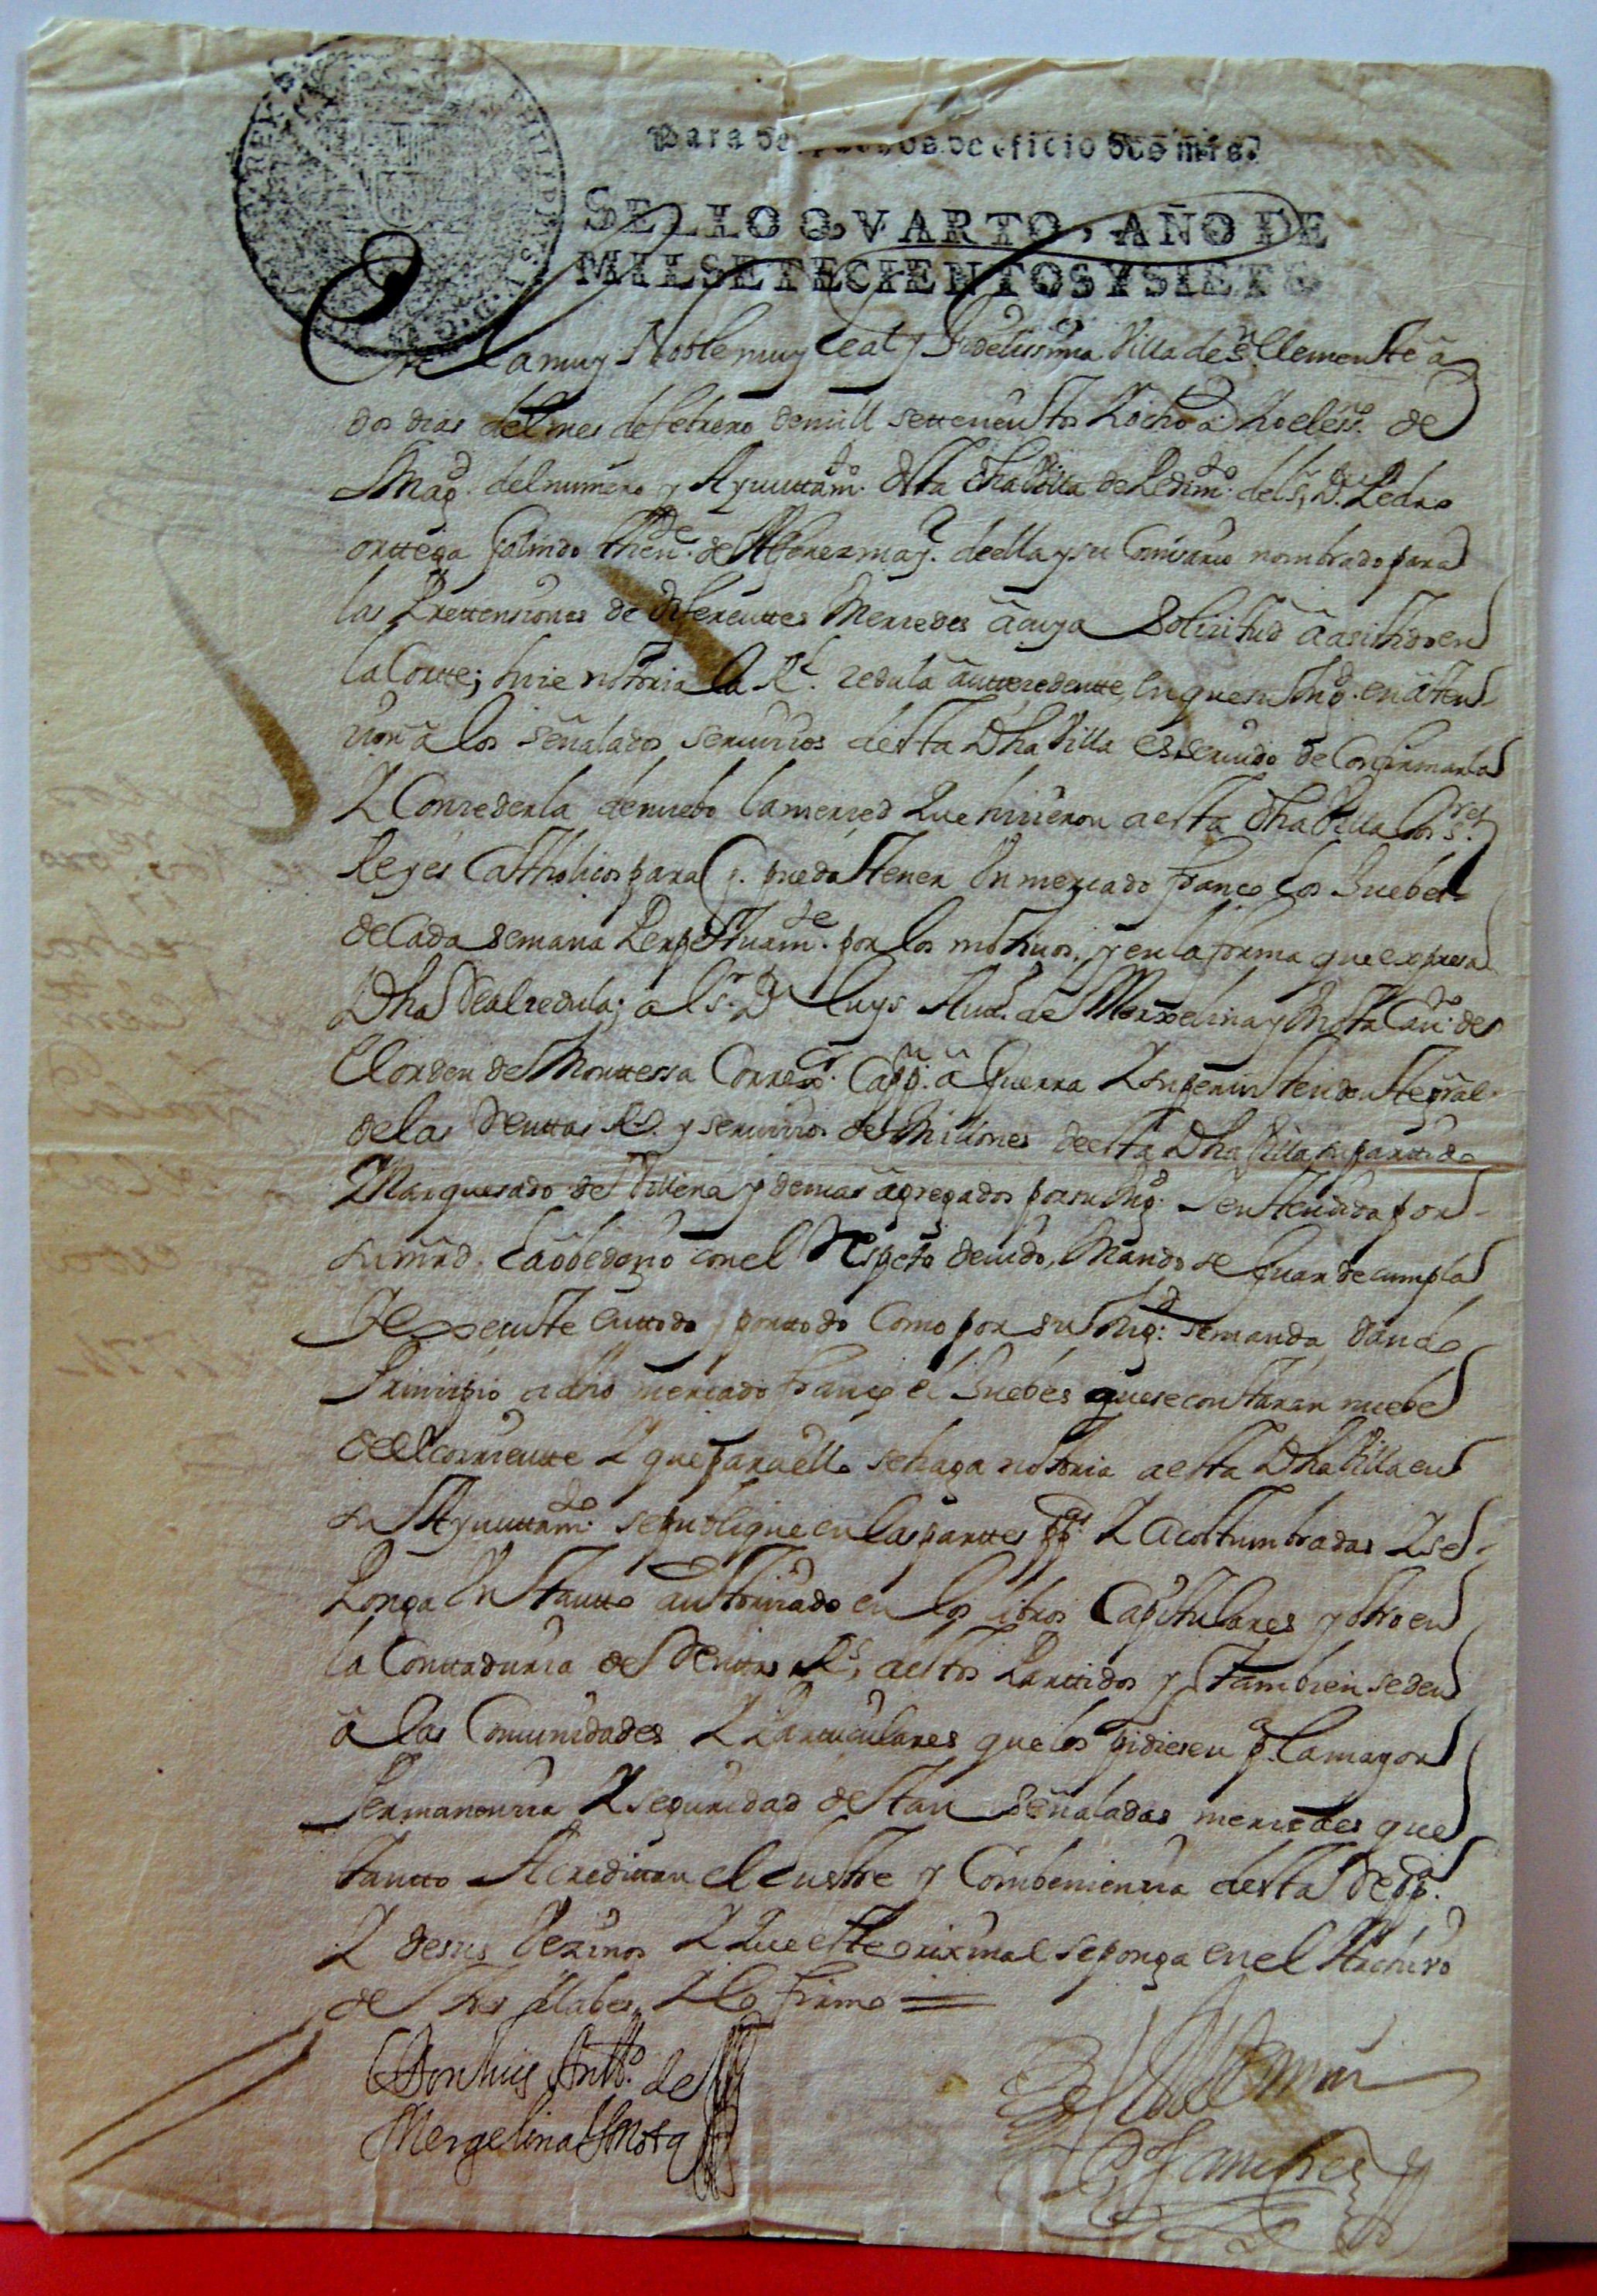 Para despachos de oficio dos mrs.
SELLO QVARTO, AÑO DE
MIL SETECIENTOS Y SIETE
PHILIPPVS
En La muy Noble muy leal y fidelissima Villa de Sn. Clemente â
dos dias del mes de febrero de mill settecientos Y ocho a. Yo el essno. de
Su Magd. del numero y Ayunttamto. desta dha Villa de Pedimto. del Sr. Dn. Pedro
orttega Galindo thente. de Alferez mayr. de ella y su Comisario nombrado para
las Prettensiones de diferenttes Mercedes â cuya Solicitud â asistido en
la Cortte; hice nottoria la Rl. zedula âutezedentte, en que su Mgd. en âten
cion â los señalados servicios de esta Dha Villa es servido de Confirmarla
Y Concederla de nuebo la merced Que hicieron a esta dha Villa los sres.
Reyes Catholicos para q. pueda tener Un mercado franco los Juebes
de Cada semana Perpetuamte. por los motivos, y en la forma que expresa
Dha Real cedula; a el Sr. Dn. Luys Antto. de Merxelina y Mota Cavo. de
el orden de Monttessa Correxor. Cappn. â Guerra Y superintendente gral.
de las Renttas Rs. y servicios de Millones de esta Dha Villa su parttido
Marquesado de Villena y demas âgregados por su Mgd. Y entendida por
su mrd. La obedezio con el Respeto devido, Mando se guarde cumpla
Y exxecute en ttodo y por ttodo Como por su Mgd. se manda, dando
Principio a dho mercado franco el Juebes que se contaran nuebe
de el corrientte Y que para ello se haga nottoria a esta Dha Villa en
su Ayunttamto. se publique en las parttes ppcas. Y acostumbradas Y se
Ponga Un tantto autorizado en los libros Capitulares y otro en
la Conttaduria de Renttas Rs. destos Parttidos y tambien se den
â las Comunidades Y Particulares que los pidiesen pa. la mayor
Permanencia Y seguridad de tan señaladas mercedes que
tantto Acreditan el lustre y Combeniencia desta Reppca.
Y de sus Vezinos Y Que este orixinal se ponga en el Archivo
de tres llabes, Y lo firmo =
Don Luis Antto. de
Mergelina y Mota
Sanchez